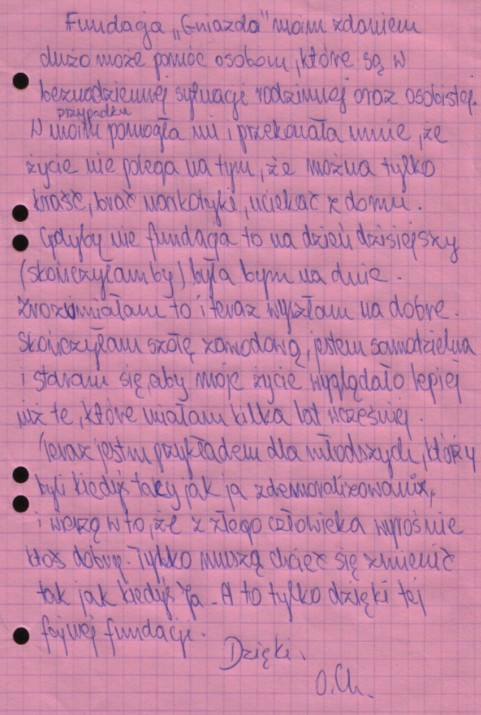 Fundacja „Gniazdo” moim zdaniem
dużo może pomóc osobom, które są w
beznadziemnej sytuacji rodzinnej oraz osobistej.
W moim przypadku pomogła mi i przekonała mnie, że
życie nie polega na tym, że można tylko
kraść, brać narkotyki, uciekać z domu.
Gdyby nie fundacja to na dzień dzisiejszy
(skończyłamby) była bym na dnie.
Zrozumiałam to i teraz wyszłam na dobre.
Skończyłam szkołę zawodową, jestem samodzielna
i staram się, aby moje życie wyglądało lepiej
niż te, które miałam kilka lat wcześniej.
Teraz jestem przykładem dla młodszych, którzy
byli kiedyś tacy jak ja zdemoralizowani,
i wierzą w to, że z złego człowieka wyrośnie
ktoś dobry. Tylko muszą chcieć się zmienić
tak jak kiedyś Ja. A to tylko dzięki tej
fajnej fundacji.
Dzięki.
O.Ch.